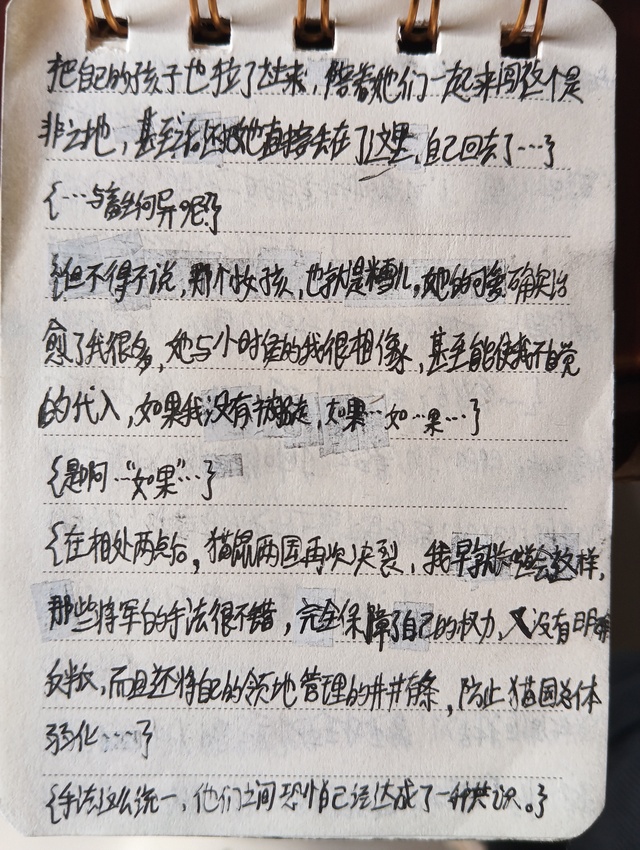 把自己的孩子也拉了过来，陪着她们一起来闯这个是
非之地，甚至还把她直接丢在了这里，自己回去了…}
{…与畜生何异呢?}
{但不得不说，那个女孩，也就是糯儿，她的可爱确实治
愈了我很多，她与小时侯的我很相像，甚至能使我不自觉
的代入，如果我没有被，如果…如…果…}
{是啊…“如果”…}
{在相处两点后，猫鼠两国再次决裂，我早就知道会这样，
那些将军的手法很不错，完全保障了自己的权力，又没有明确
反叛，而且还将自己的领地管理的井井有条，防止猫国总体
弱化…}
{手法这么统一，他们之间恐怕已经达成了一种共识。}